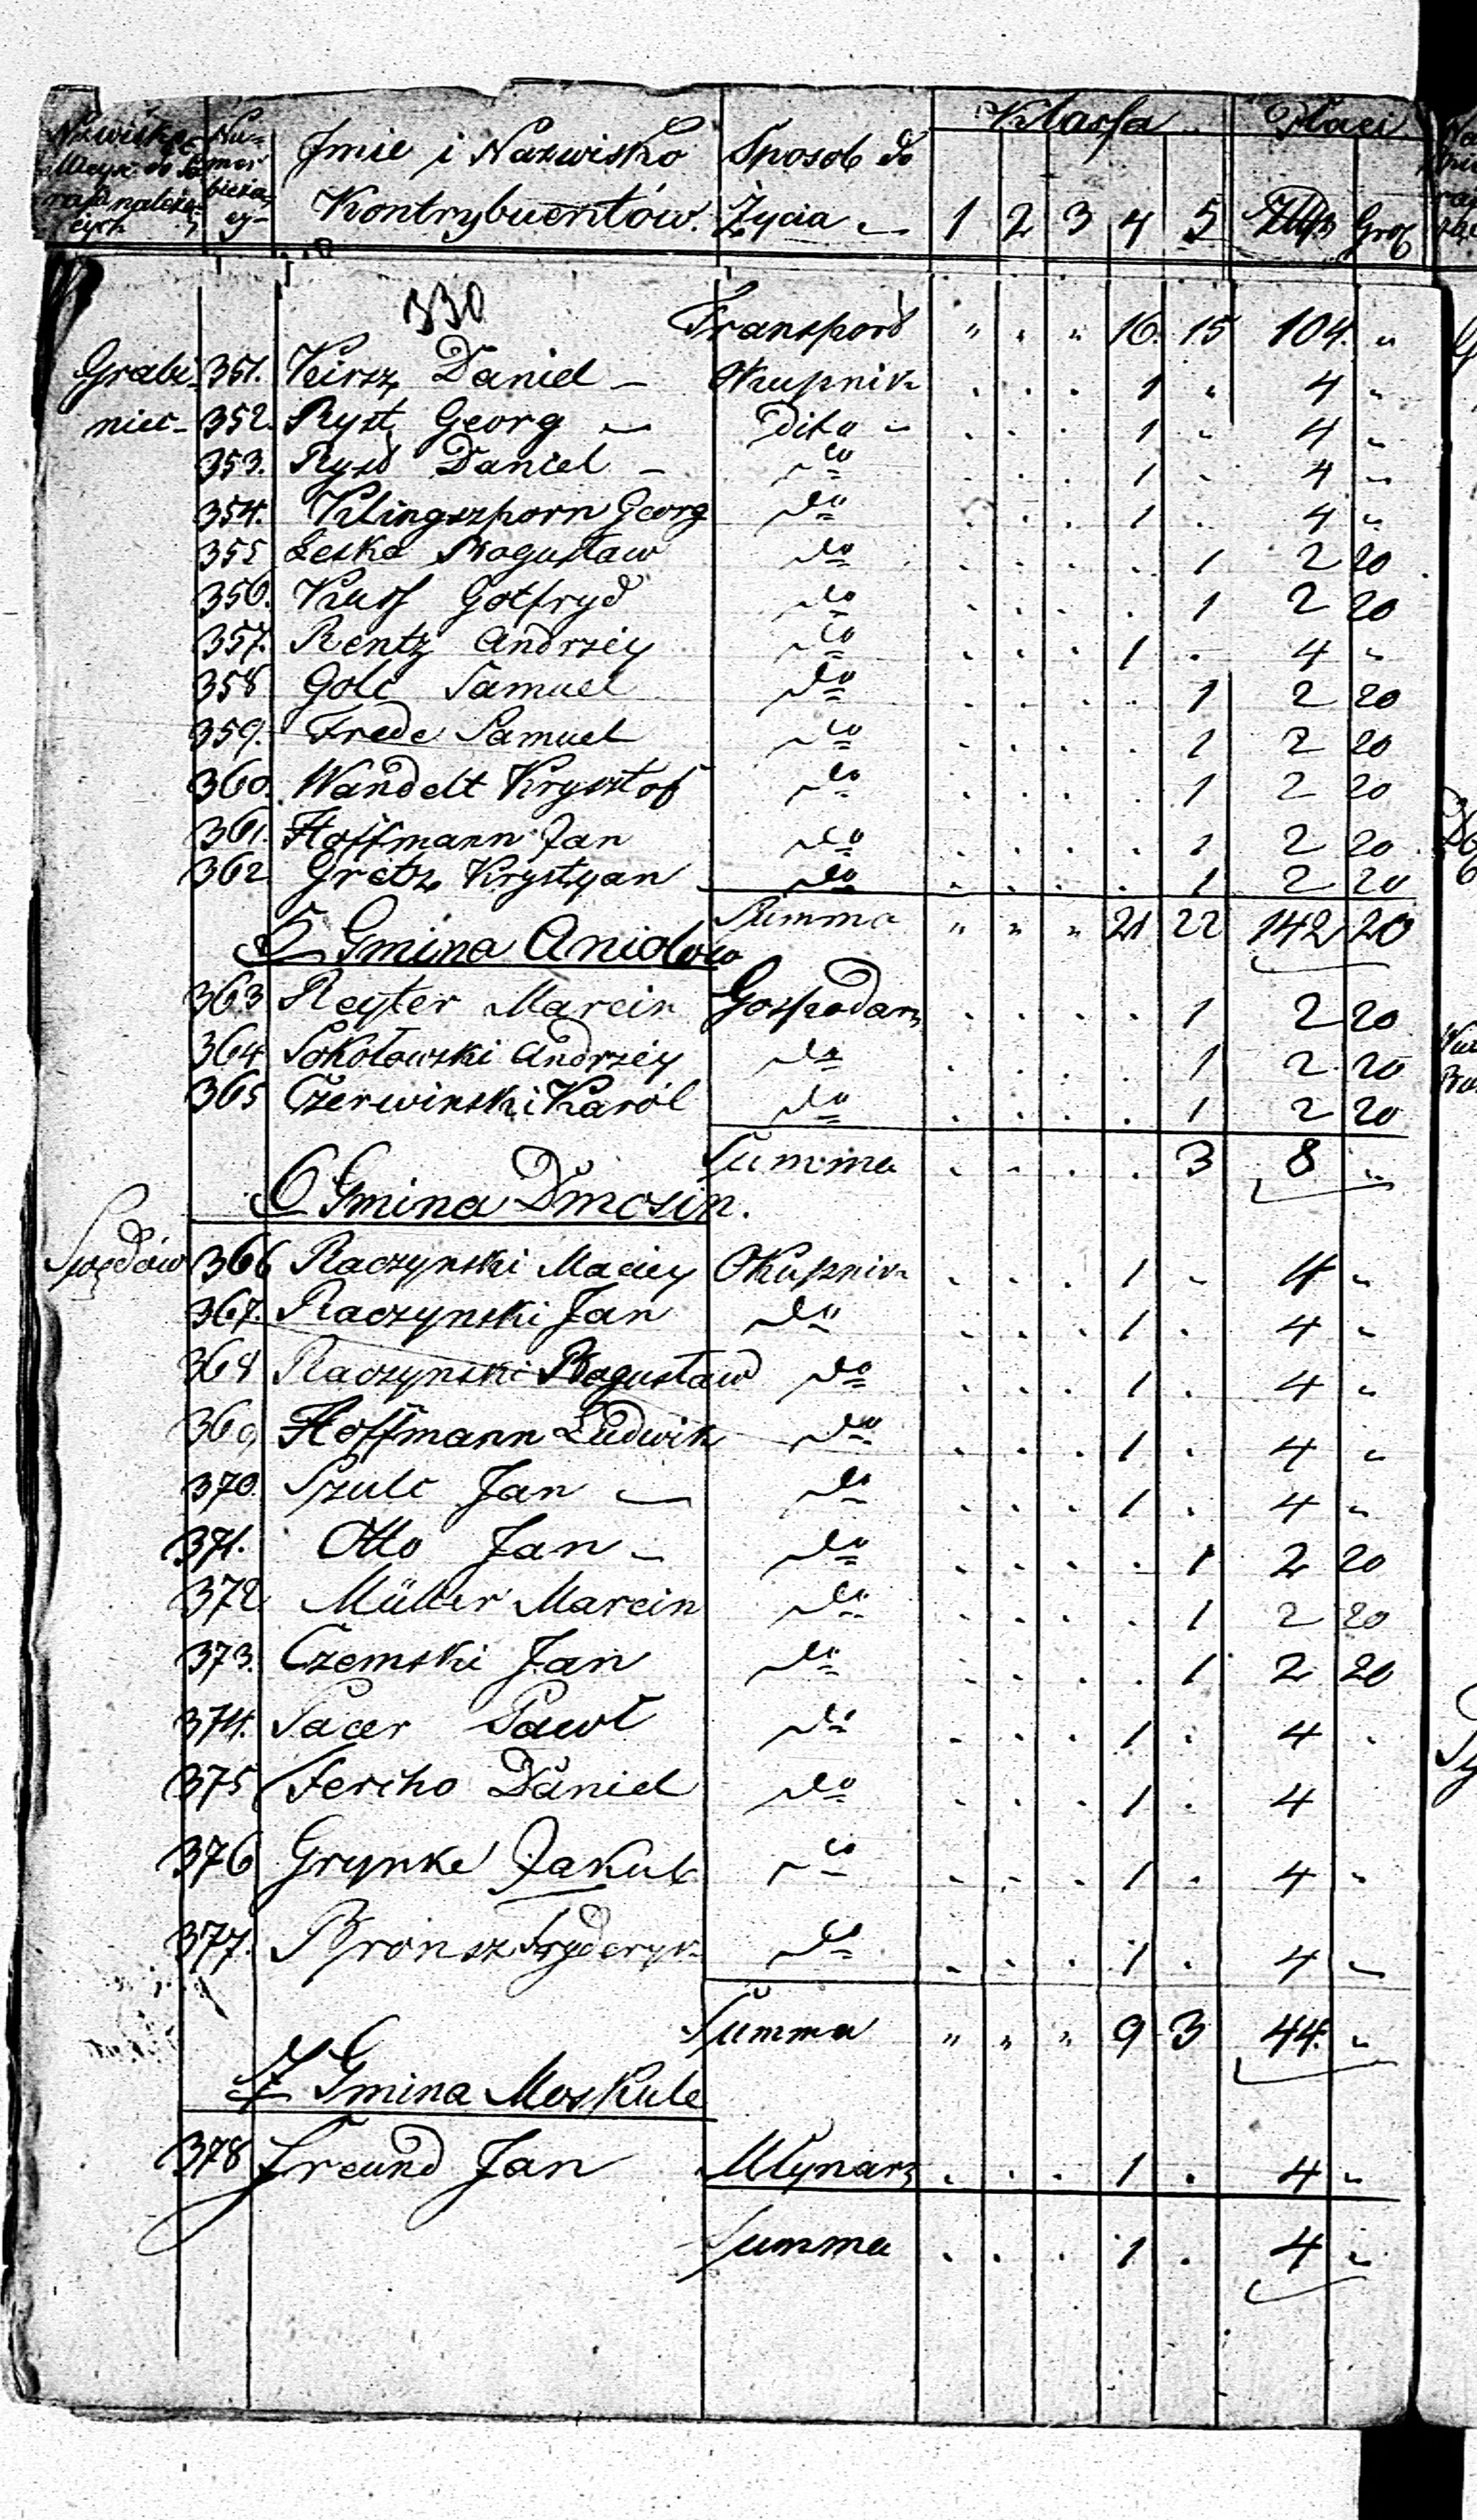 Imie i Nazwisko Kontrybuentów. Sposob do Życia Klassa 1 2 3 4 5 Płaci Złłp Gros
330
Transport " " " 16. 15 104. "
Grabi- 351. Kirsz Daniel - Okupnik . . . 1 " 4 "
niec- 352. Ryst Georg - Dito . . . 1 " 4 "
353. Ryst Daniel - do . . . 1 " 4 "
354. Klingszporn Georg do . . . 1 . 4 "
355 Leske Bogusław do . . . . 1 2 20
356. Kuss Gotfryd do . . . . 1 2 20
357. Rentz Andrzéy do . . . 1 . 4 "
358 Golc Samuel do . . . . 1 2 20
359. Frede Samuel do . . . . 1 2 20
360. Wandelt Krysztof do . . . . 1 2 20
361. Hoffmann Jan do . . . . 1 2 20
362. Gretz Krystyan do . . . . 1 2 20
Summa " " " 21 22 142 20
5 Gmina Aniołów
363 Reyter Marcin Gospodarz . . . . 1 2 20
364 Sokołowski Andrzéy do . . . . 1 2 20
365 Czerwinski Karól do . . . . 1 2 20
Summa . . . . 3 8 "
6 Gmina Dmosin.
366 Raczynski Maciey Okupnik . . . 1 " 4 "
367. Raczynski Jan do . . . 1 . 4 "
368 Raczynski Bogusław do . . . 1 . 4 "
369 Hoffmann Ludwik do . . . 1 . 4 "
370. Szulc Jan - do . . . 1 . 4 "
371. Otto Jan - do . . . . 1 2 20
372. Müller Marcin do . . . . 1 2 20
373. Czemski Jan do . . . . 1 2 20
374. Pacer Paweł do . . . 1 . 4 .
375 Fercho Daniel do . . . 1 . 4
376 Grynke Jakub do . . . 1 . 4 "
377. Bronsz Fryderyk do . . . 1 . 4 "
Summa " " " 9 3 44. "
7 Gmina Moskule
378 Freund Jan Młynarz . . . 1 . 4 "
Summa . . . 1 . 4 "